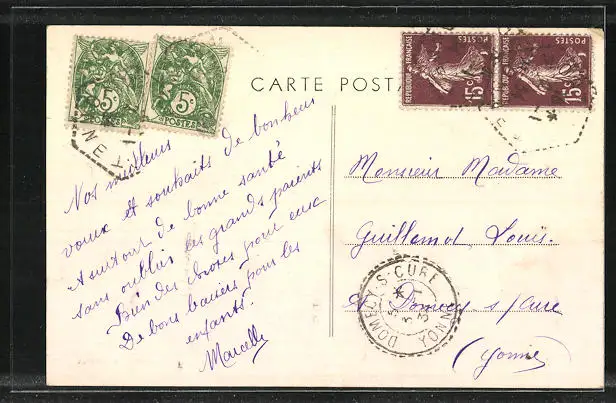 CARTE POSTA
5c
5c
POSTES
RÉPUBLIQUE FRANÇAISE
POSTES
15c
RÉPUBLIQUE FRANÇAISE
POSTES
15c
Nos meilleurs
vœux et souhaits de bonheur
surtout de bonne santé
sans oublier les grands parents
Bien des choses pour eux
De bons baisers pour les
enfants.
Marcelle
Monsieur Madame
Guillemot Louis.
Domecy s/ Cure
(Yonne)
DOMECY-S-CURE
YONNE